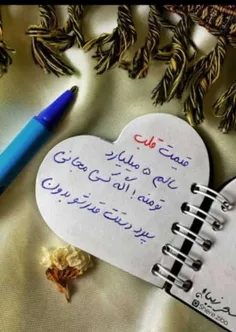 قیمت قلب
سالم ۵ میلیارد
تومنه ! اگه کسی مجانی
سپرد دستت قدرشو بدون